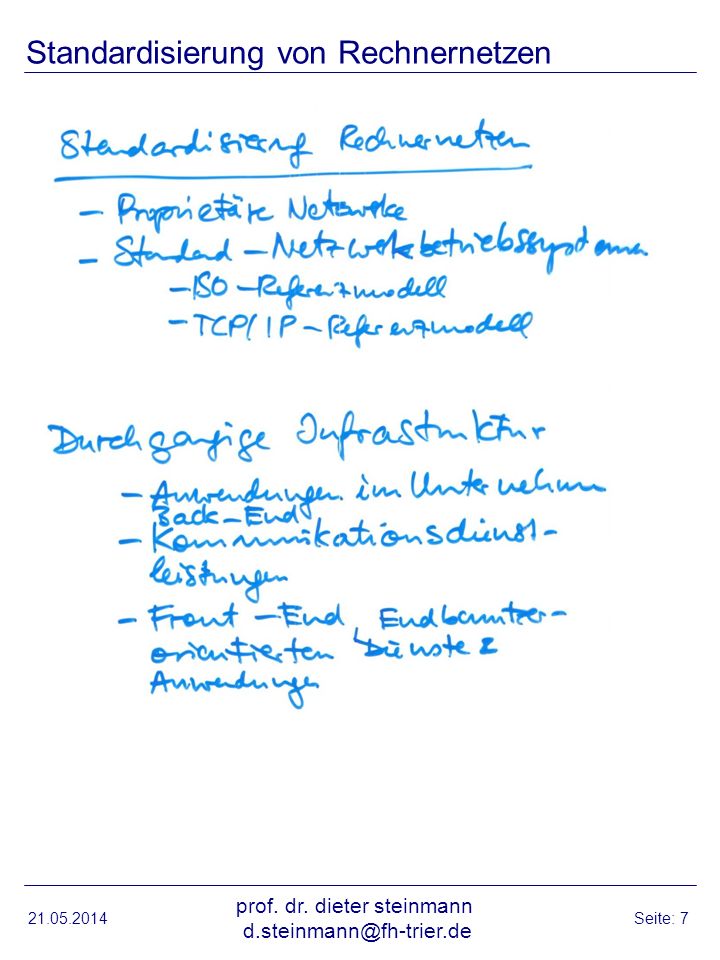 Standardisierung von Rechnernetzen
Standardisierung Rechnernetzen
- Proprietäre Netzwerke
- Standard - Netzwerkbetriebssysteme
- ISO - Referenzmodell
- TCP/IP - Referenzmodell
Durchgängige Infrastruktur
- Anwendungen im Unternehmen
Back-End
- Kommunikationsdienst-
leistungen
- Front-End, Endbenutzer-
orientierten Dienste
Anwendungen
21.05.2014
prof. dr. dieter steinmann
d.steinmann@fh-trier.de
Seite: 7